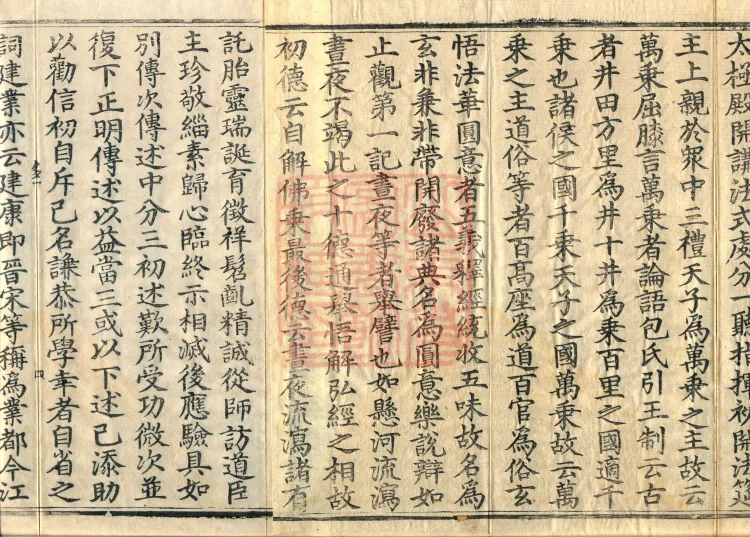 太極殿開講法式處分一聽指撝初開法筵
主上親於眾中三禮天子爲萬乘之主故云
萬乘屈膝言萬乘者論語包氏引王制云古
者井田方里爲井十井爲乘百里之國適千
乘也諸侯之國千乘天子之國萬乘故云萬
乘之主道俗等者百髙座爲道百官爲俗玄
悟法華圓意者五義釋經統收五味故名爲
玄非兼非帶開廢諸典名爲圓意樂說辯如
止觀第一記晝夜等者舉譬也如懸河流瀉
晝夜不竭此之十德通舉悟解弘經之相故
初德云自解佛乘最後德云晝夜流瀉諸有
託胎靈瑞誕育徵祥髫齓精誠從師訪道臣
主珍敬緇素歸心臨終示相滅後應驗具如
別傳次傳述中分三初述歎所受功微次並
復下正明傳述以益當三或以下述己添助
以勸信初自斥己名謙恭所學幸者自省之
四
詞建業亦云建康即晉宋等稱爲業都今江